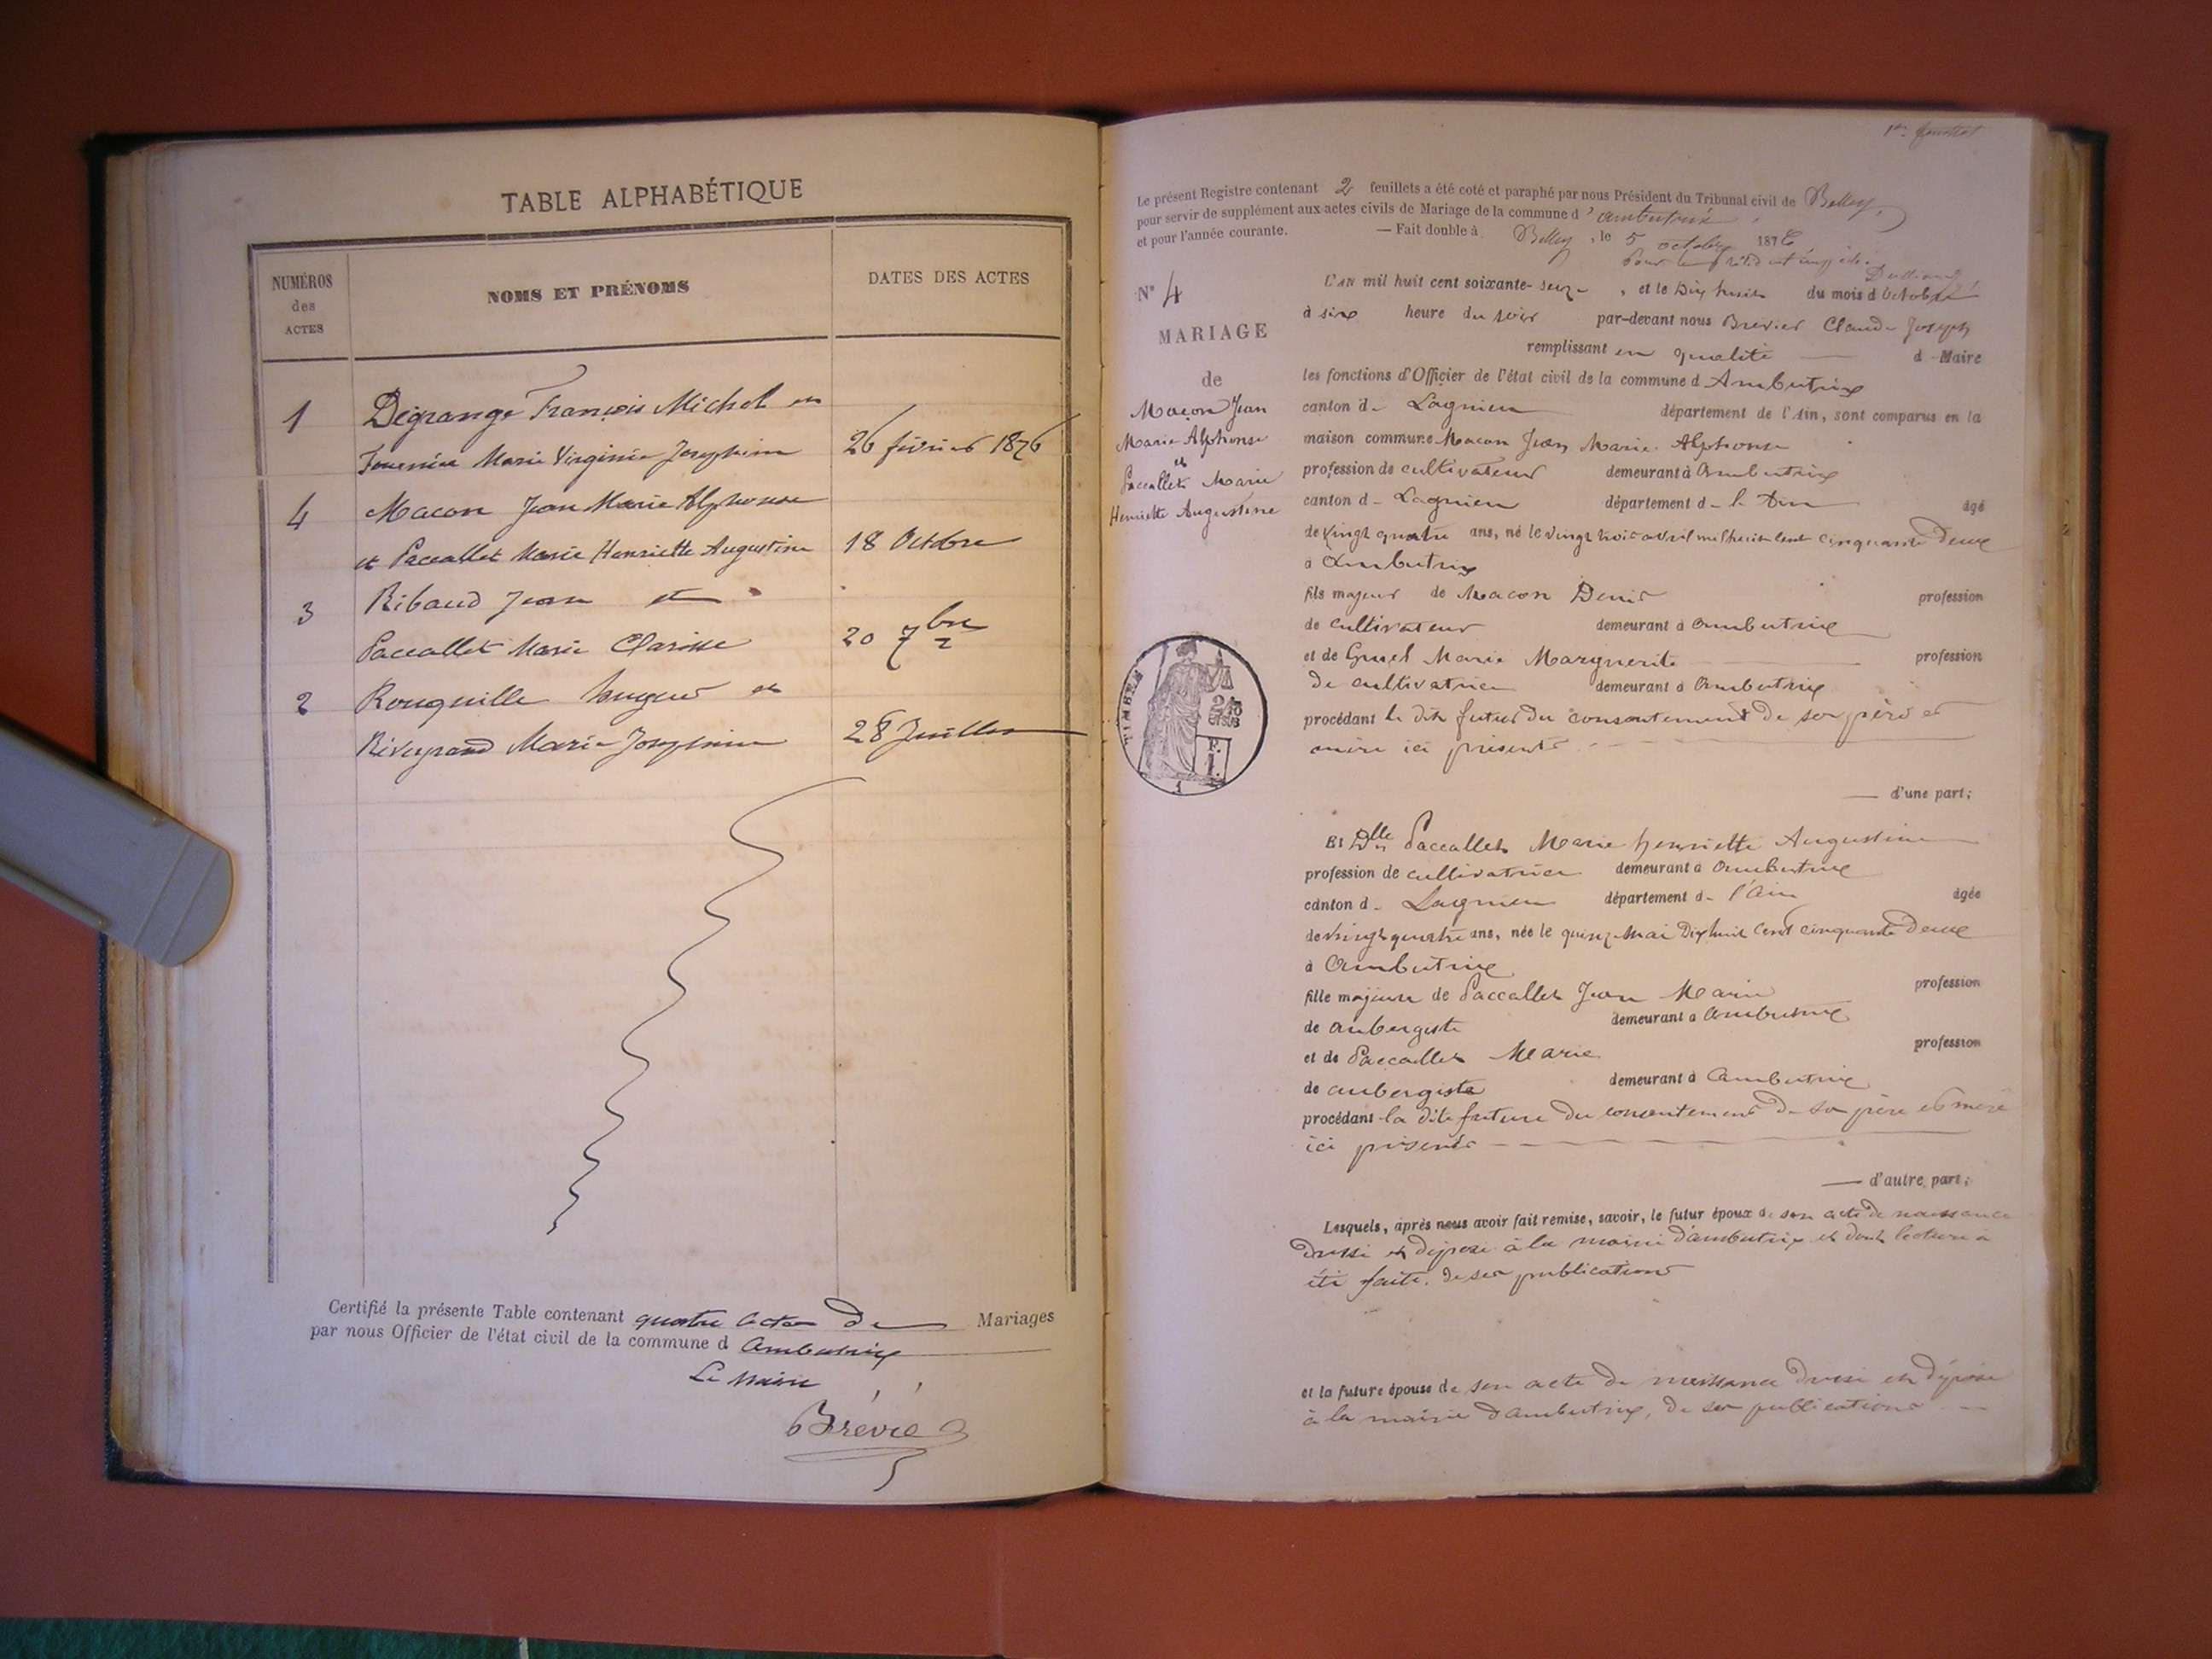 TABLE ALPHABÉTIQUE
NUMÉROS
des
ACTES
NOMS ET PRÉNOMS
DATES DES ACTES
1
Dégrange François Michel et
Fournier Marie Virginie Josephine
26 février 1876
4
Macon Jean Marie Alphonse
et Paccallet Marie Henriette Augustine
18 Octobre
3
Ribaud Jean et
Paccallet Marie Clarisse
20 7bre
2
Rouquille et
Marie Josephine
28 Juillet
Certifié la présente Table contenant quatre actes de Mariages
par nous Officier de l'état civil de la commune d Ambutrix
Le Maire
Brévet
1er feuillet
Le présent Registre contenant 2 feuillets a été coté et paraphé par nous Président du Tribunal civil de Belley,
pour servir de supplément aux actes civils de Mariage de la commune d'ambutrix
et pour l'année courante. — Fait double à Belley, le 5 octobre 1876
pour le empêché
N° 4
MARIAGE
de
Maçon Jean
Marie Alphonse
et
Paccallet Marie
Henriette Augustine
TIMBRE
L'AN mil huit cent soixante-seize, et le Dix huit du mois d Octobre
à six heure du soir par-devant nous Claude Joseph
remplissant en qualité d - Maire
les fonctions d'Officier de l'état civil de la commune d Ambutrix
canton de Lagnieu département de l'Ain, sont comparus en la
maison commune Macon Jean Marie Alphonse
profession de cultivateur demeurant à Ambutrix
canton de Lagnieu département de l'Ain âgé
de vingt quatre ans, né le vingt trois avril mil huit cent cinquante Deux
à Ambutrix
fils majeur de Macon Denis profession
de cultivateur demeurant à Ambutrix
et de Marie Marguerite profession
de cultivatrice demeurant à Ambutrix
procédant le dit futur du consentement de ses père et
mère ici présents
d'une part;
Et Dlle Paccallet Marie henriette Augustine
profession de cultivatrice demeurant à Ambutrix
canton de Lagnieu département de l'Ain âgée
de vingt quatre ans, née le quinze Mai Dix huit Cent cinquante Deux
à Ambutrix
fille majeure de Paccallet Jean Marie profession
de aubergiste demeurant à Ambutrix
et de Paccallet Marie profession
de aubergiste demeurant à Ambutrix
procédant la dite future du consentement de ses père et mère
ici présents
d'autre part;
Lesquels, après nous avoir fait remise, savoir, le futur époux de son acte de naissance
Dressé et déposé à la mairie d'ambutrix et dont lecture a
été faite, de ses publications
et la future épouse de son acte de naissance Dressé et déposé
à la mairie d'ambutrix, de ses publications